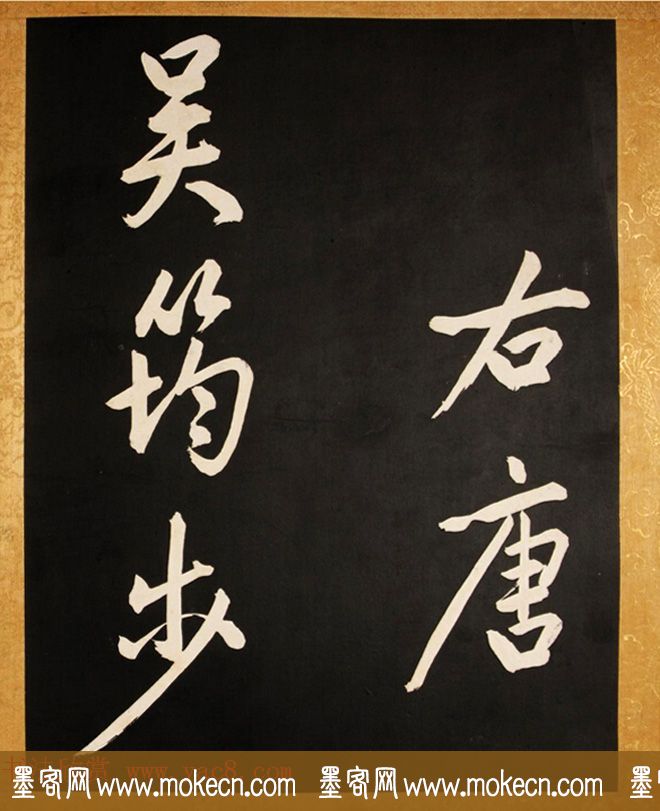 右唐
吴筠步
墨客网 www.mokecn.com 墨客网 www.mokecn.com
www.yac8.com